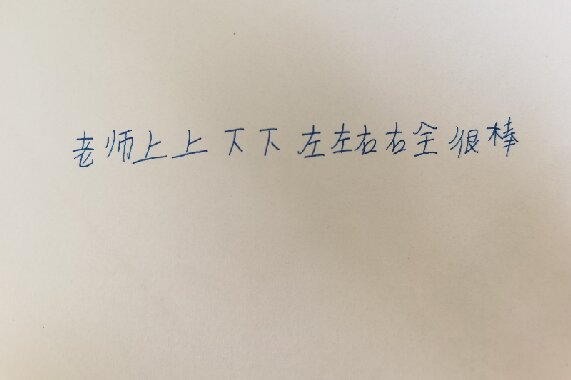 老师上上下下左左右右全很棒